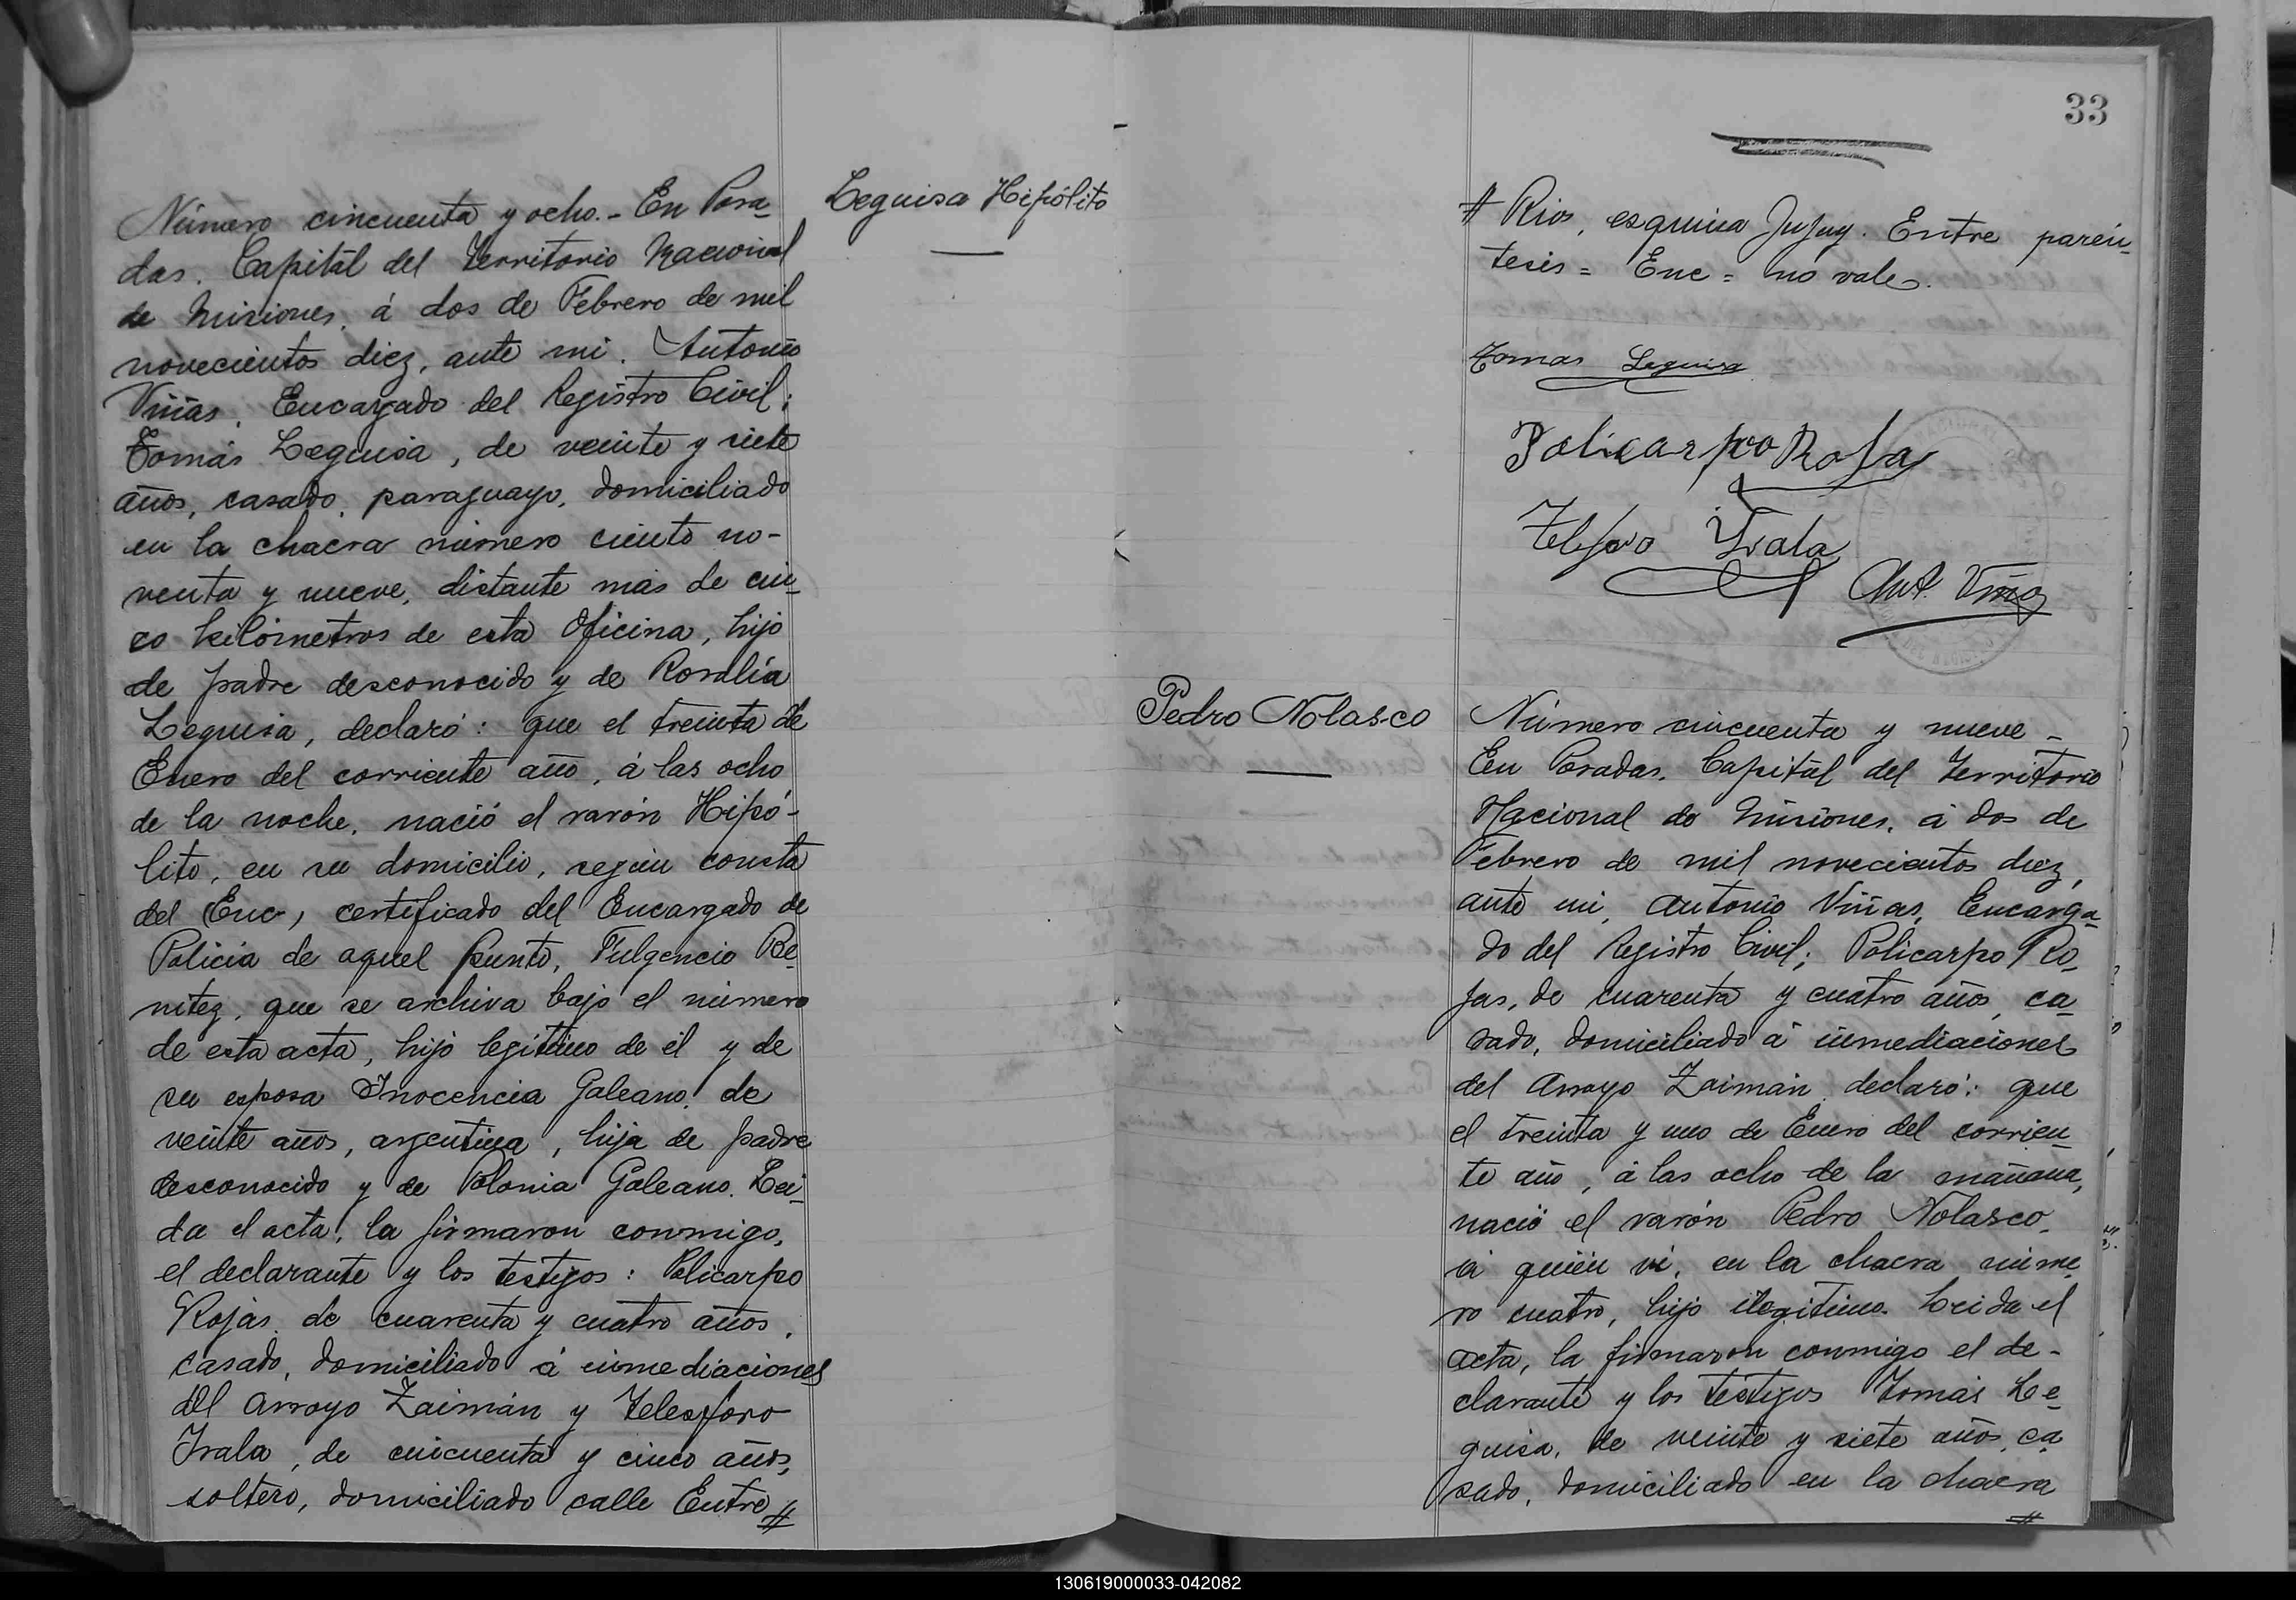 Número cincuenta y ocho. - En Posa-
das, Capital del Territorio Nacional
de Misiones, á dos de Febrero de mil
novecientos diez, ante mi, Antonio
Viñas, Encargado del Registro Civil;
Tomás Leguisa, de veinte y siete
años, casado, paraguayo, domiciliado
en la chacra número ciento no-
venta y nueve, distante más de cin-
co kilómetros de esta Oficina, hijo
de padre desconocido y de Rosalía
Leguisa, declaró: que el treinta de
Enero del corriente año, á las ocho
de la noche, nació el varón Hipó-
lito, en su domicilio, según consta
del (Enc) certificado del Encargado de
Policía de aquel Punto, Fulgencio Be-
nitez, que se archiva bajo el número
de esta acta, hijo legítimo de él y de
su esposa Inocencia Galeano, de
veinte años, argentina, hija de padre
desconocido y de Polonia Galeano. Lei-
da el acta, la firmaron conmigo,
el declarante y los testigos: Policarpo
Rojas, de cuarenta y cuatro años,
casado, domiciliado á inmediaciones
del Arroyo Zaimán y Telesforo
Irala, de cincuenta y cinco años,
soltero, domiciliado calle Entre #
Leguisa Hipólito
33
# Rios, esquina Jujuy. Entre parén-
tesis = Enc = no vale.
Tomas Leguisa
Policarpo Rojas
Telesforo Irala
Ant. Viñas
Pedro Nolasco
Número cincuenta y nueve -
En Posadas, Capital del Territorio
Nacional de Misiones, á dos de
Febrero de mil novecientos diez,
ante mi, Antonio Viñas, Encarga-
do del Registro Civil; Policarpo Ro-
jas, de cuarenta y cuatro años, ca-
sado, domiciliado á inmediaciones
del Arroyo Zaimán, declaró: que
el treinta y uno de Enero del corrien-
te año, á las ocho de la mañana,
nació el varón Pedro Nolasco,
á quién vi, en la chacra núme-
ro cuatro, hijo ilegítimo. Leida el
acta, la firmaron conmigo el de-
clarante y los testigos Tomás Le-
guisa, de veinte y siete años, ca-
sado, domiciliado en la chacra
#
130619000033-042082